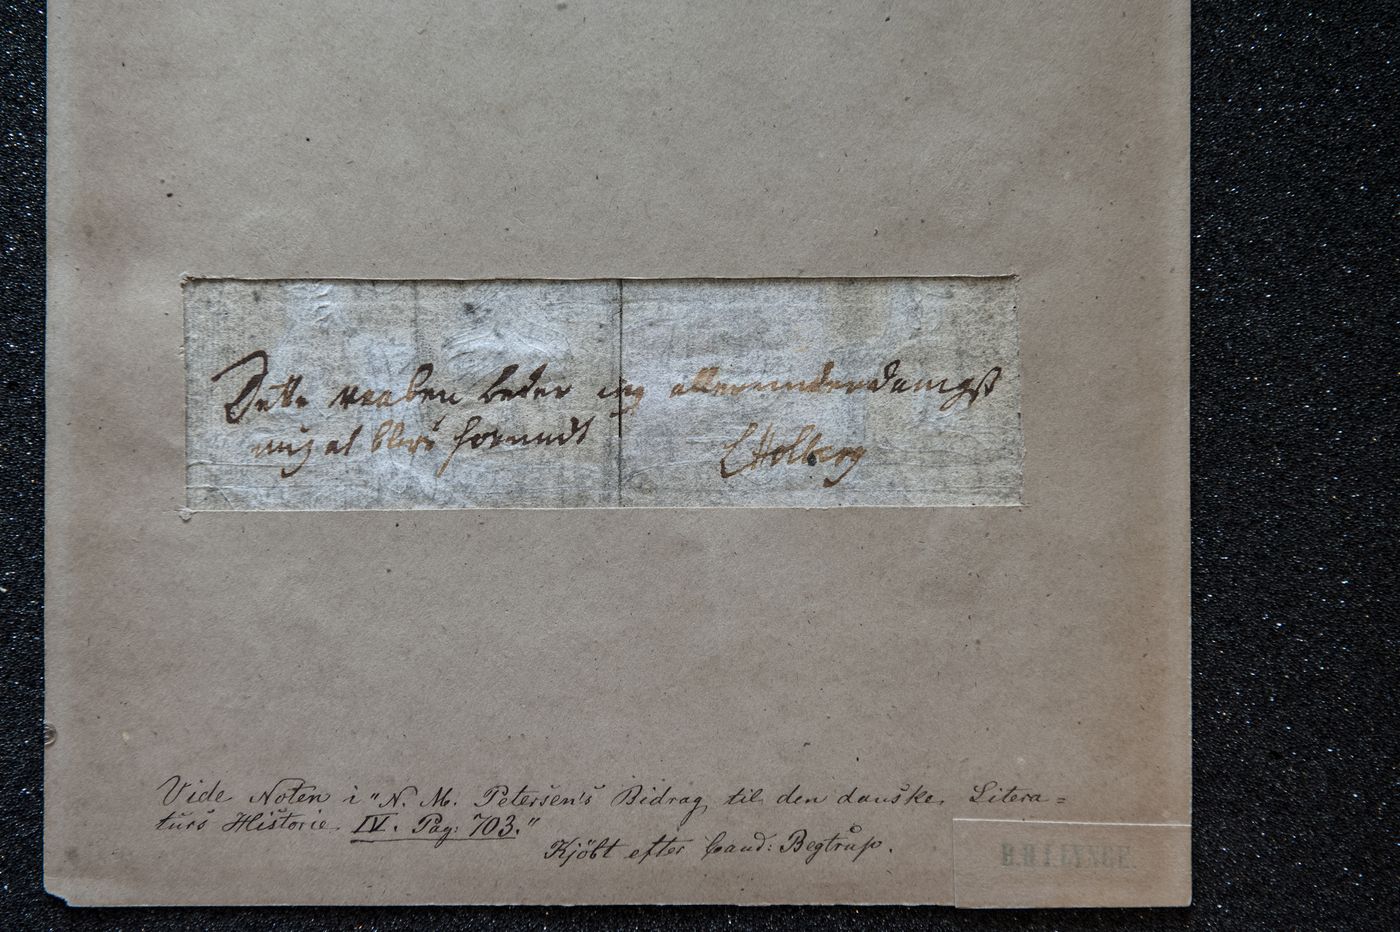 Dette vaaben beder jeg allerunderdanigst
mig at blive forundt LHolberg
Vide Noten i "N. M. Petersen's Bidrag til den danske Litera=
turs Historie IV. Pag: 703."
Kjöbt efter Cand: Begtrup.
H.H.J.LYNGE.